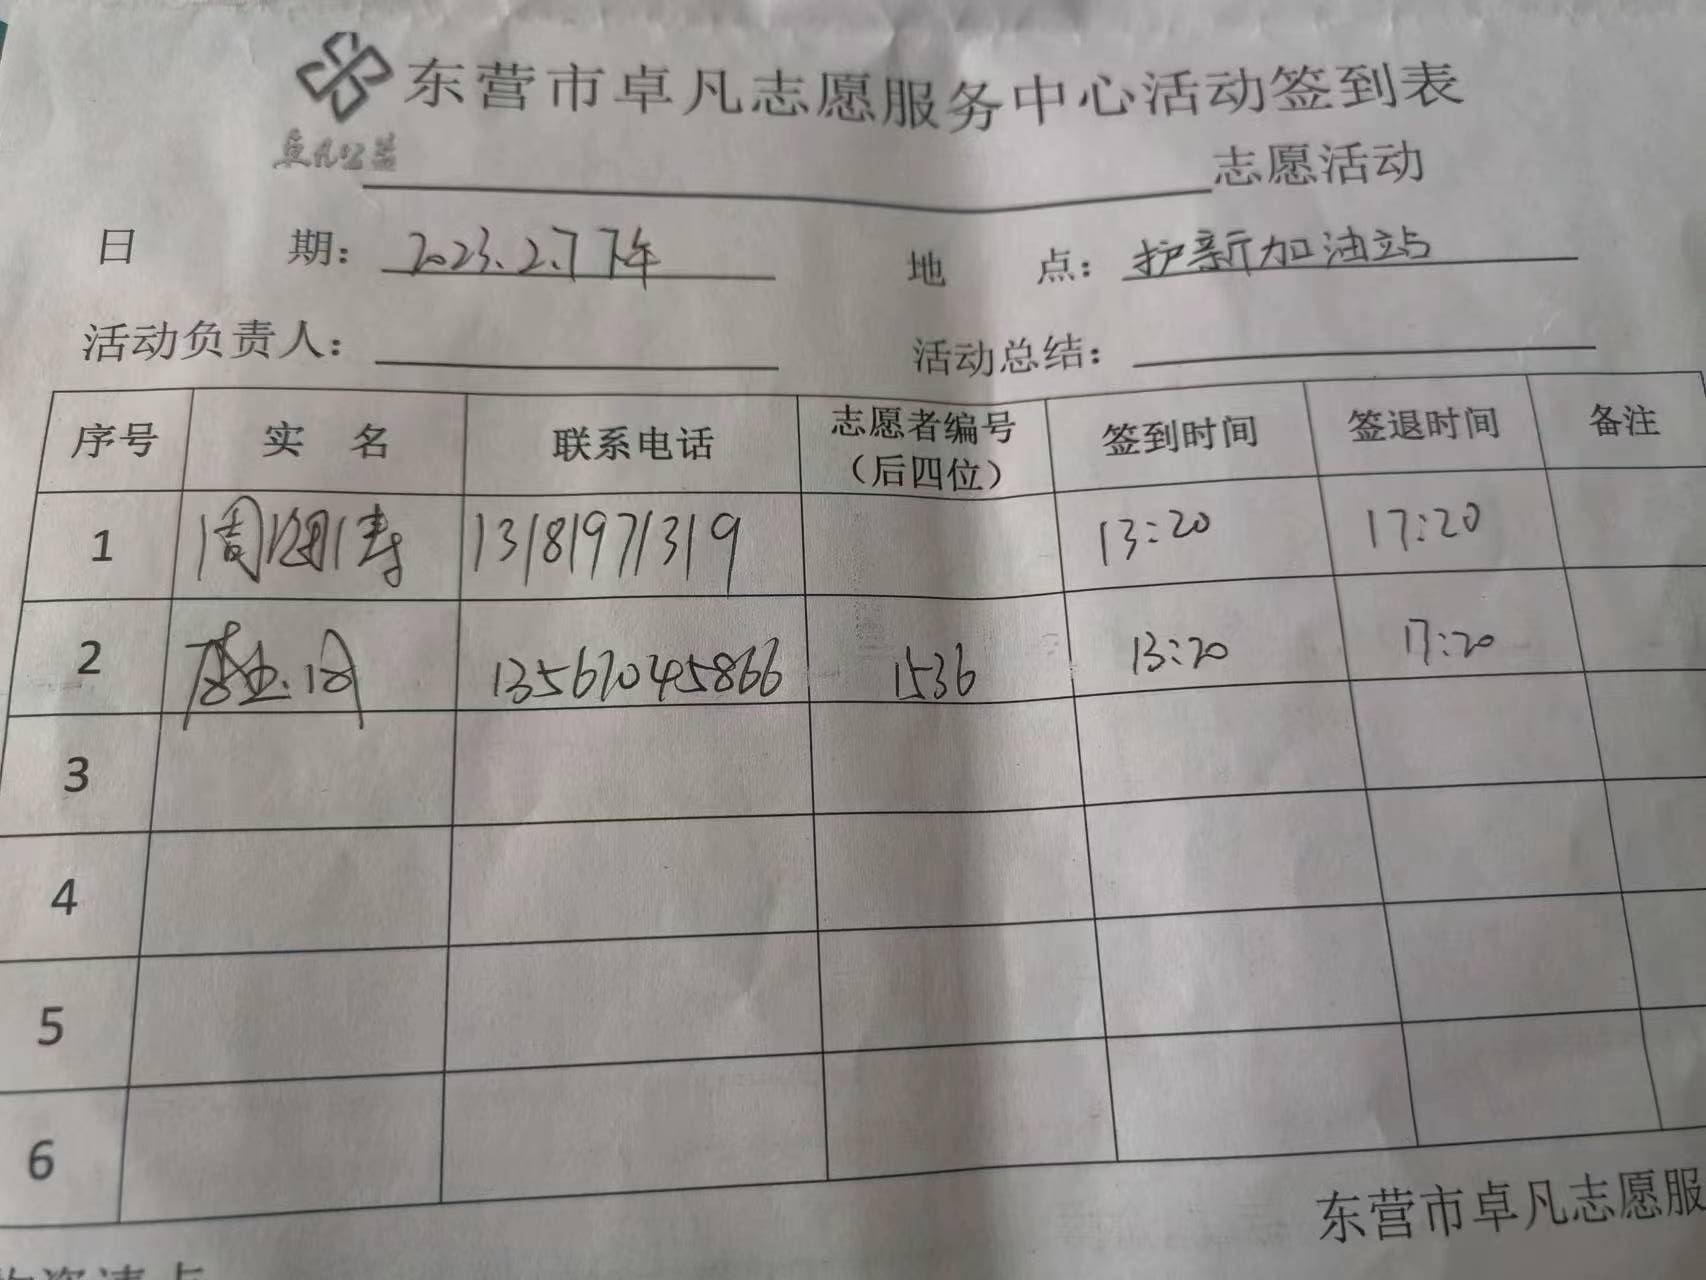 东营市卓凡志愿服务中心活动签到表
卓凡公益
志愿活动
日 期： 2023.2.7下午 地 点： 护新加油站
活动负责人： 活动总结：
序号 实 名 联系电话 志愿者编号（后四位） 签到时间 签退时间 备注
1 周 13181971319 13:20 17:20
2 13567045866 1536 13:20 17:20
3
4
5
6
东营市卓凡志愿服